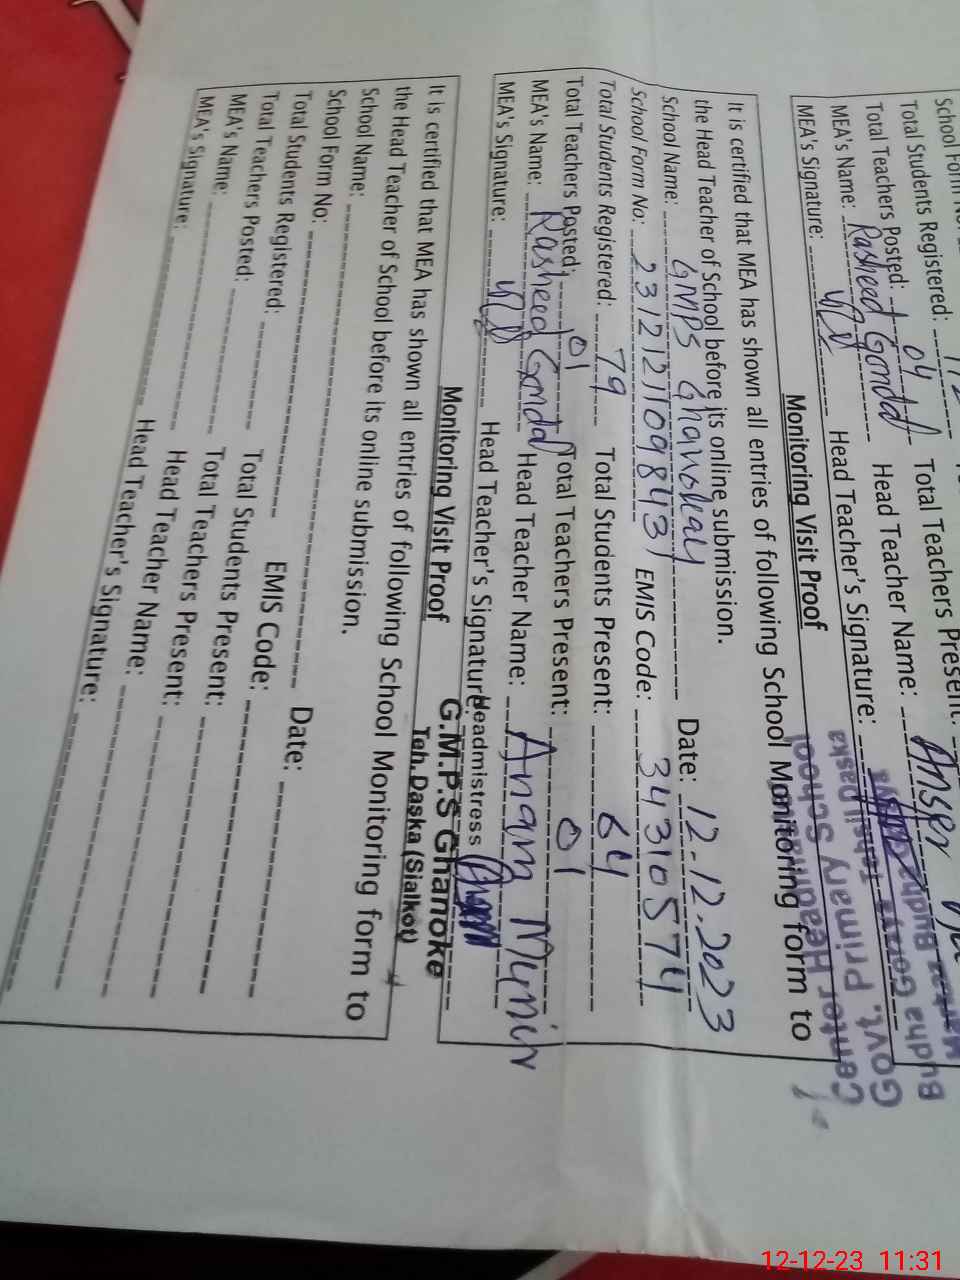 School Form No:
Total Students Registered:
Total Teachers Posted: 04 Total Teachers Present:
MEA's Name: Rasheed Gondal Head Teacher Name: Anser
MEA's Signature: Head Teacher's Signature:
Govt. Primary School
Budha Goraya Tehsil Daska
Monitoring Visit Proof
It is certified that MEA has shown all entries of following School Monitoring form to
the Head Teacher of School before its online submission.
School Name: GMPS Ghanokay Date: 12.12.2023
School Form No: EMIS Code: 34310574
Total Students Registered: 79 Total Students Present: 64
Total Teachers Posted: 01 Total Teachers Present: 01
MEA's Name: Rasheed Gondal Head Teacher Name: Anam Munir
MEA's Signature: Head Teacher's Signature:
Headmistress
G.M.P.S Ghanoke
Teh. Daska (Sialkot)
Monitoring Visit Proof
It is certified that MEA has shown all entries of following School Monitoring form to
the Head Teacher of School before its online submission.
School Name: Date:
School Form No: EMIS Code:
Total Students Registered: Total Students Present:
Total Teachers Posted: Total Teachers Present:
MEA's Name: Head Teacher Name:
MEA's Signature: Head Teacher's Signature:
12-12-23 11:31